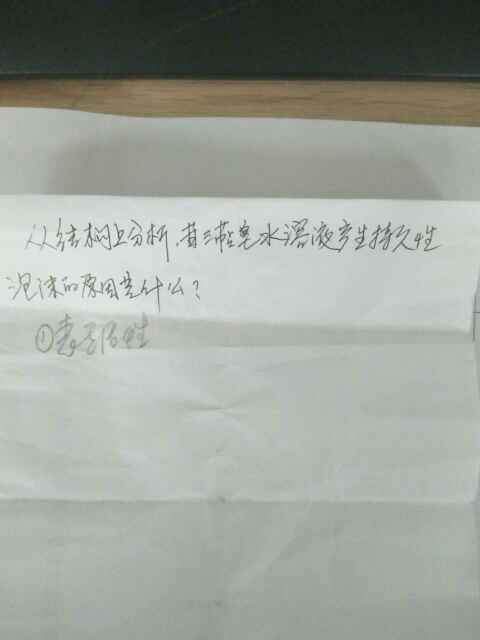 从结构上分析,甘三萜皂水溶液产生持久性
泡沫的原因是什么?
①表面活性